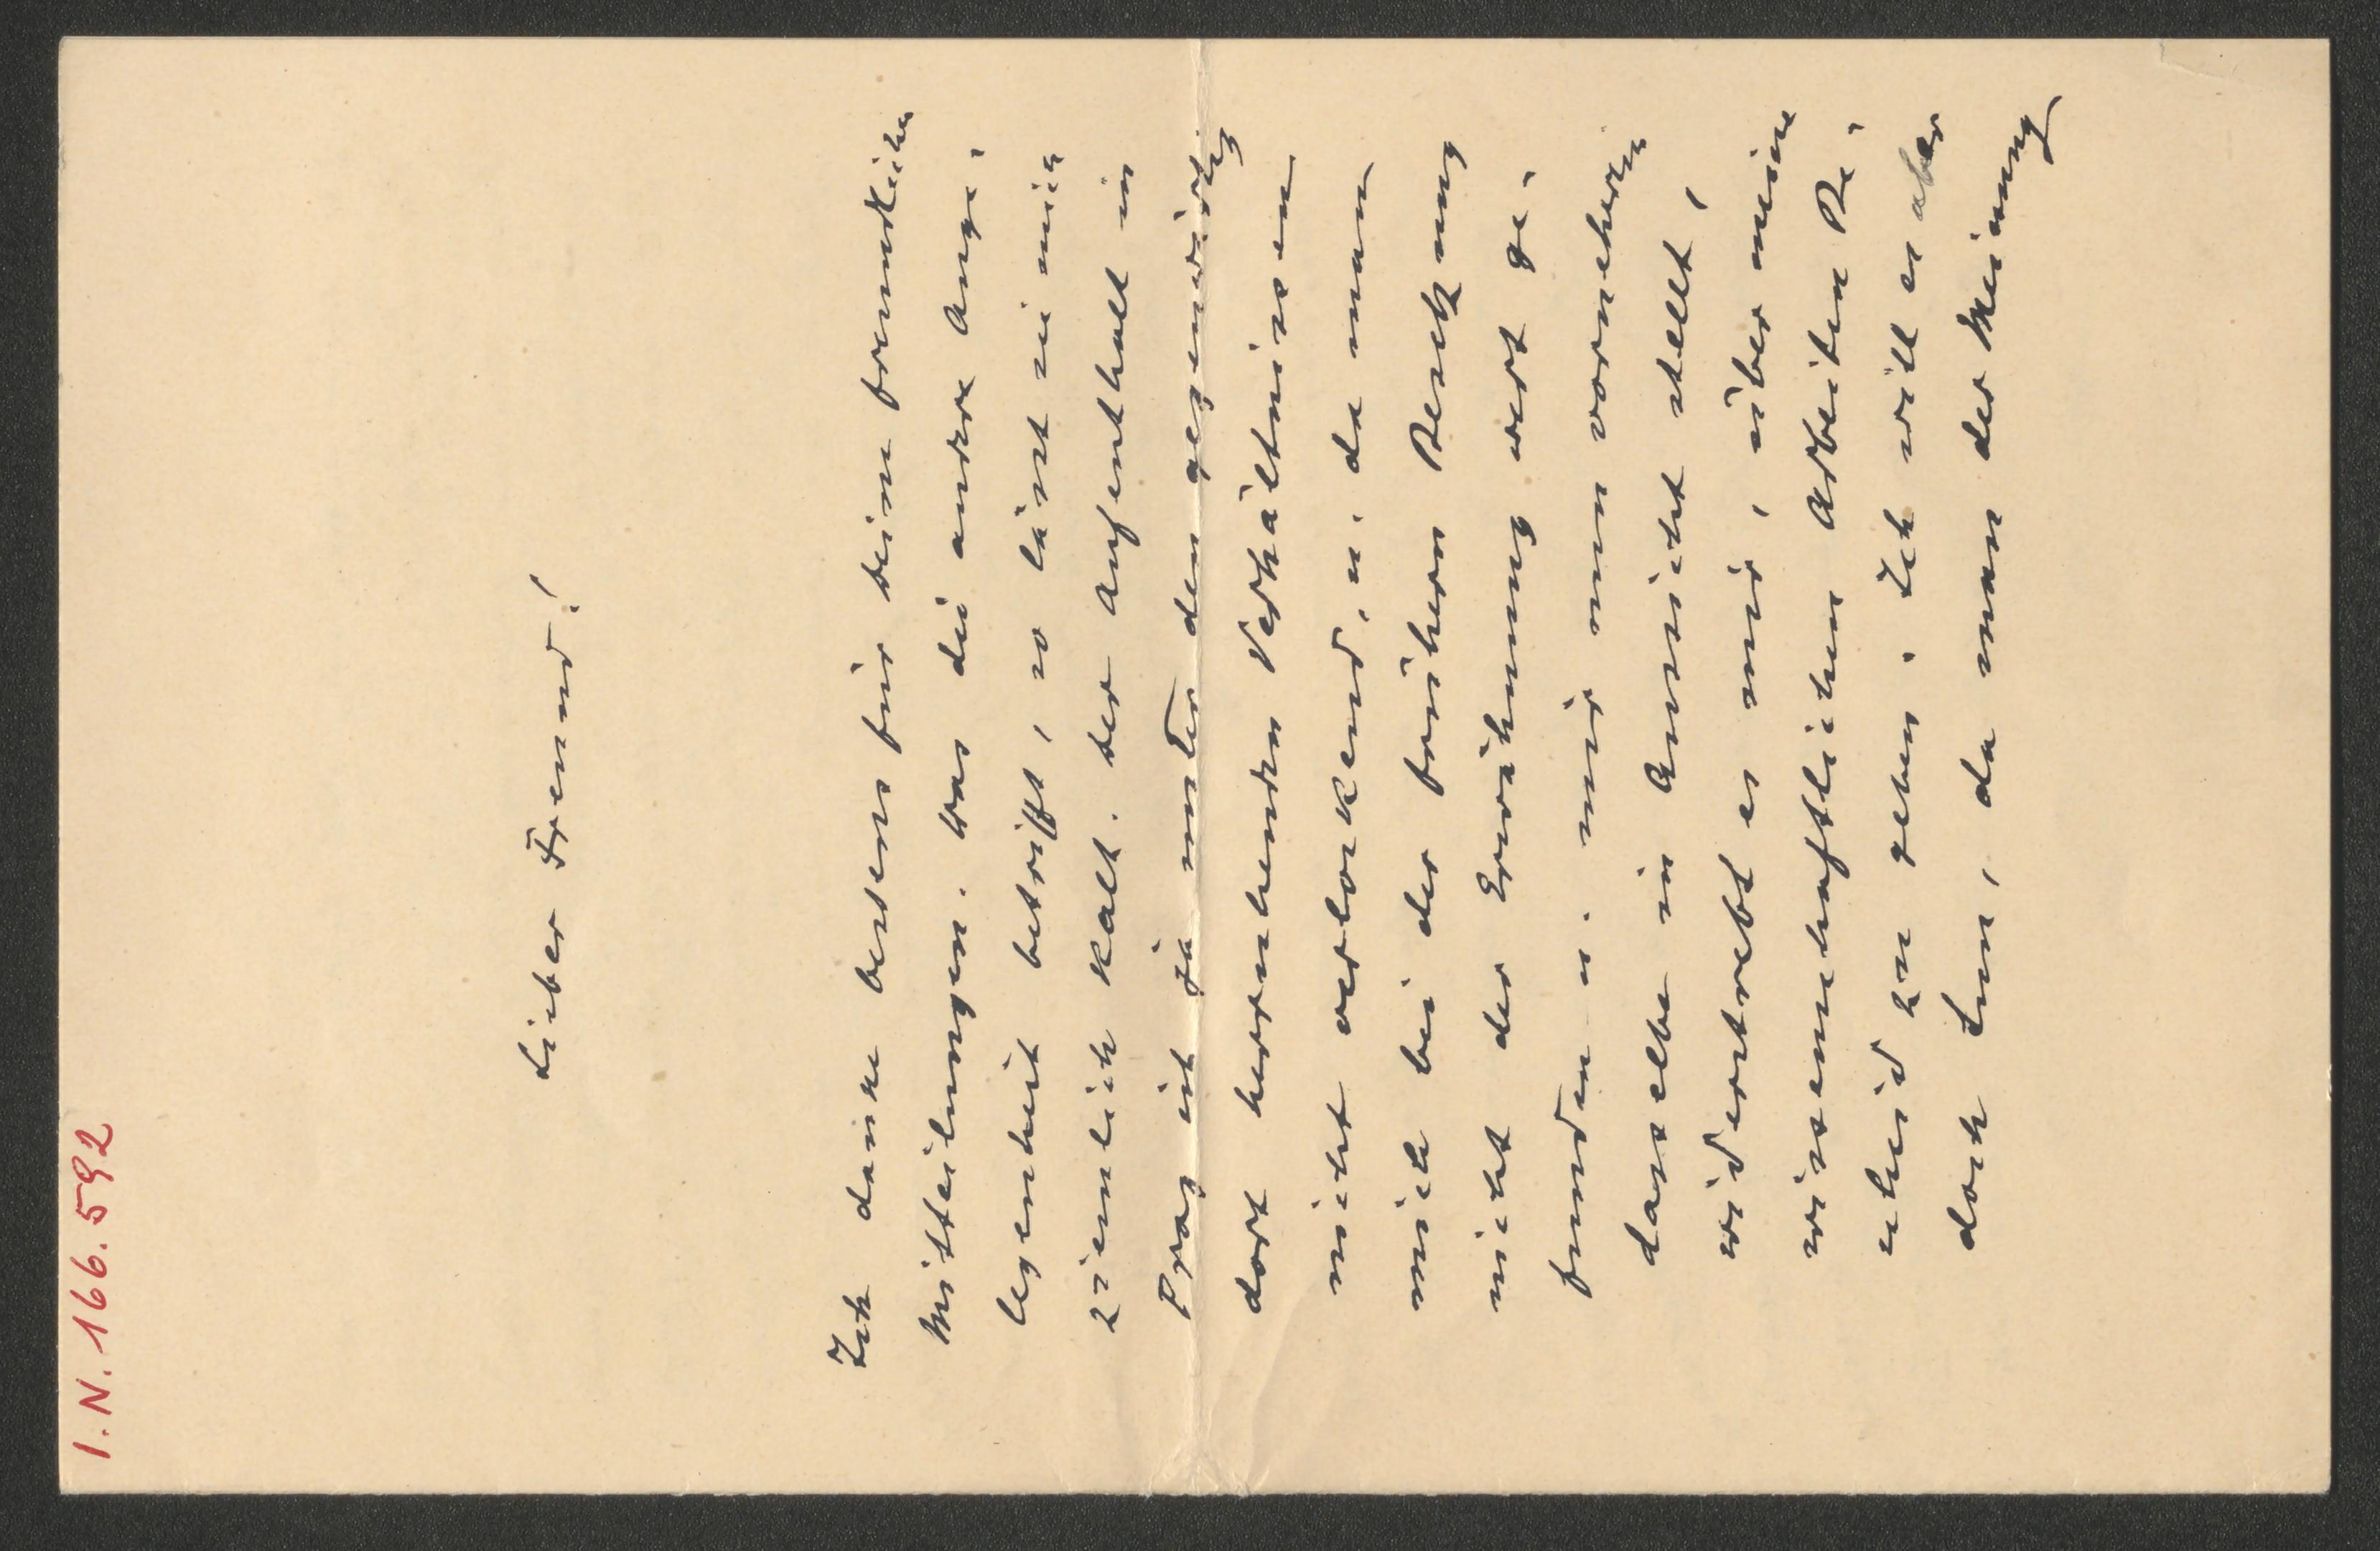 I.N. 166.592
Lieber Freund!
Ich danke bestens für deine freundlichen
Mitteilungen. Was die andere Ange-
legenheit betrifft, so lässt sie mich
ziemlich kalt. Der Aufenthalt in
Prag ist ja unter den gegenwärtig
dort herrschenden Verhältnissen
nicht verlockend, u. da man
mich bei der früheren Besetzung
nicht der Erwähnung wert ge-
funden u. mir nun vorneherein
dasselbe in Aussicht stellt,
widerstrebt es mir, über meine
wissenschaftlichen Arbeiten Be-
scheid zu geben. Ich will es aber
doch tun, da man der Meinung